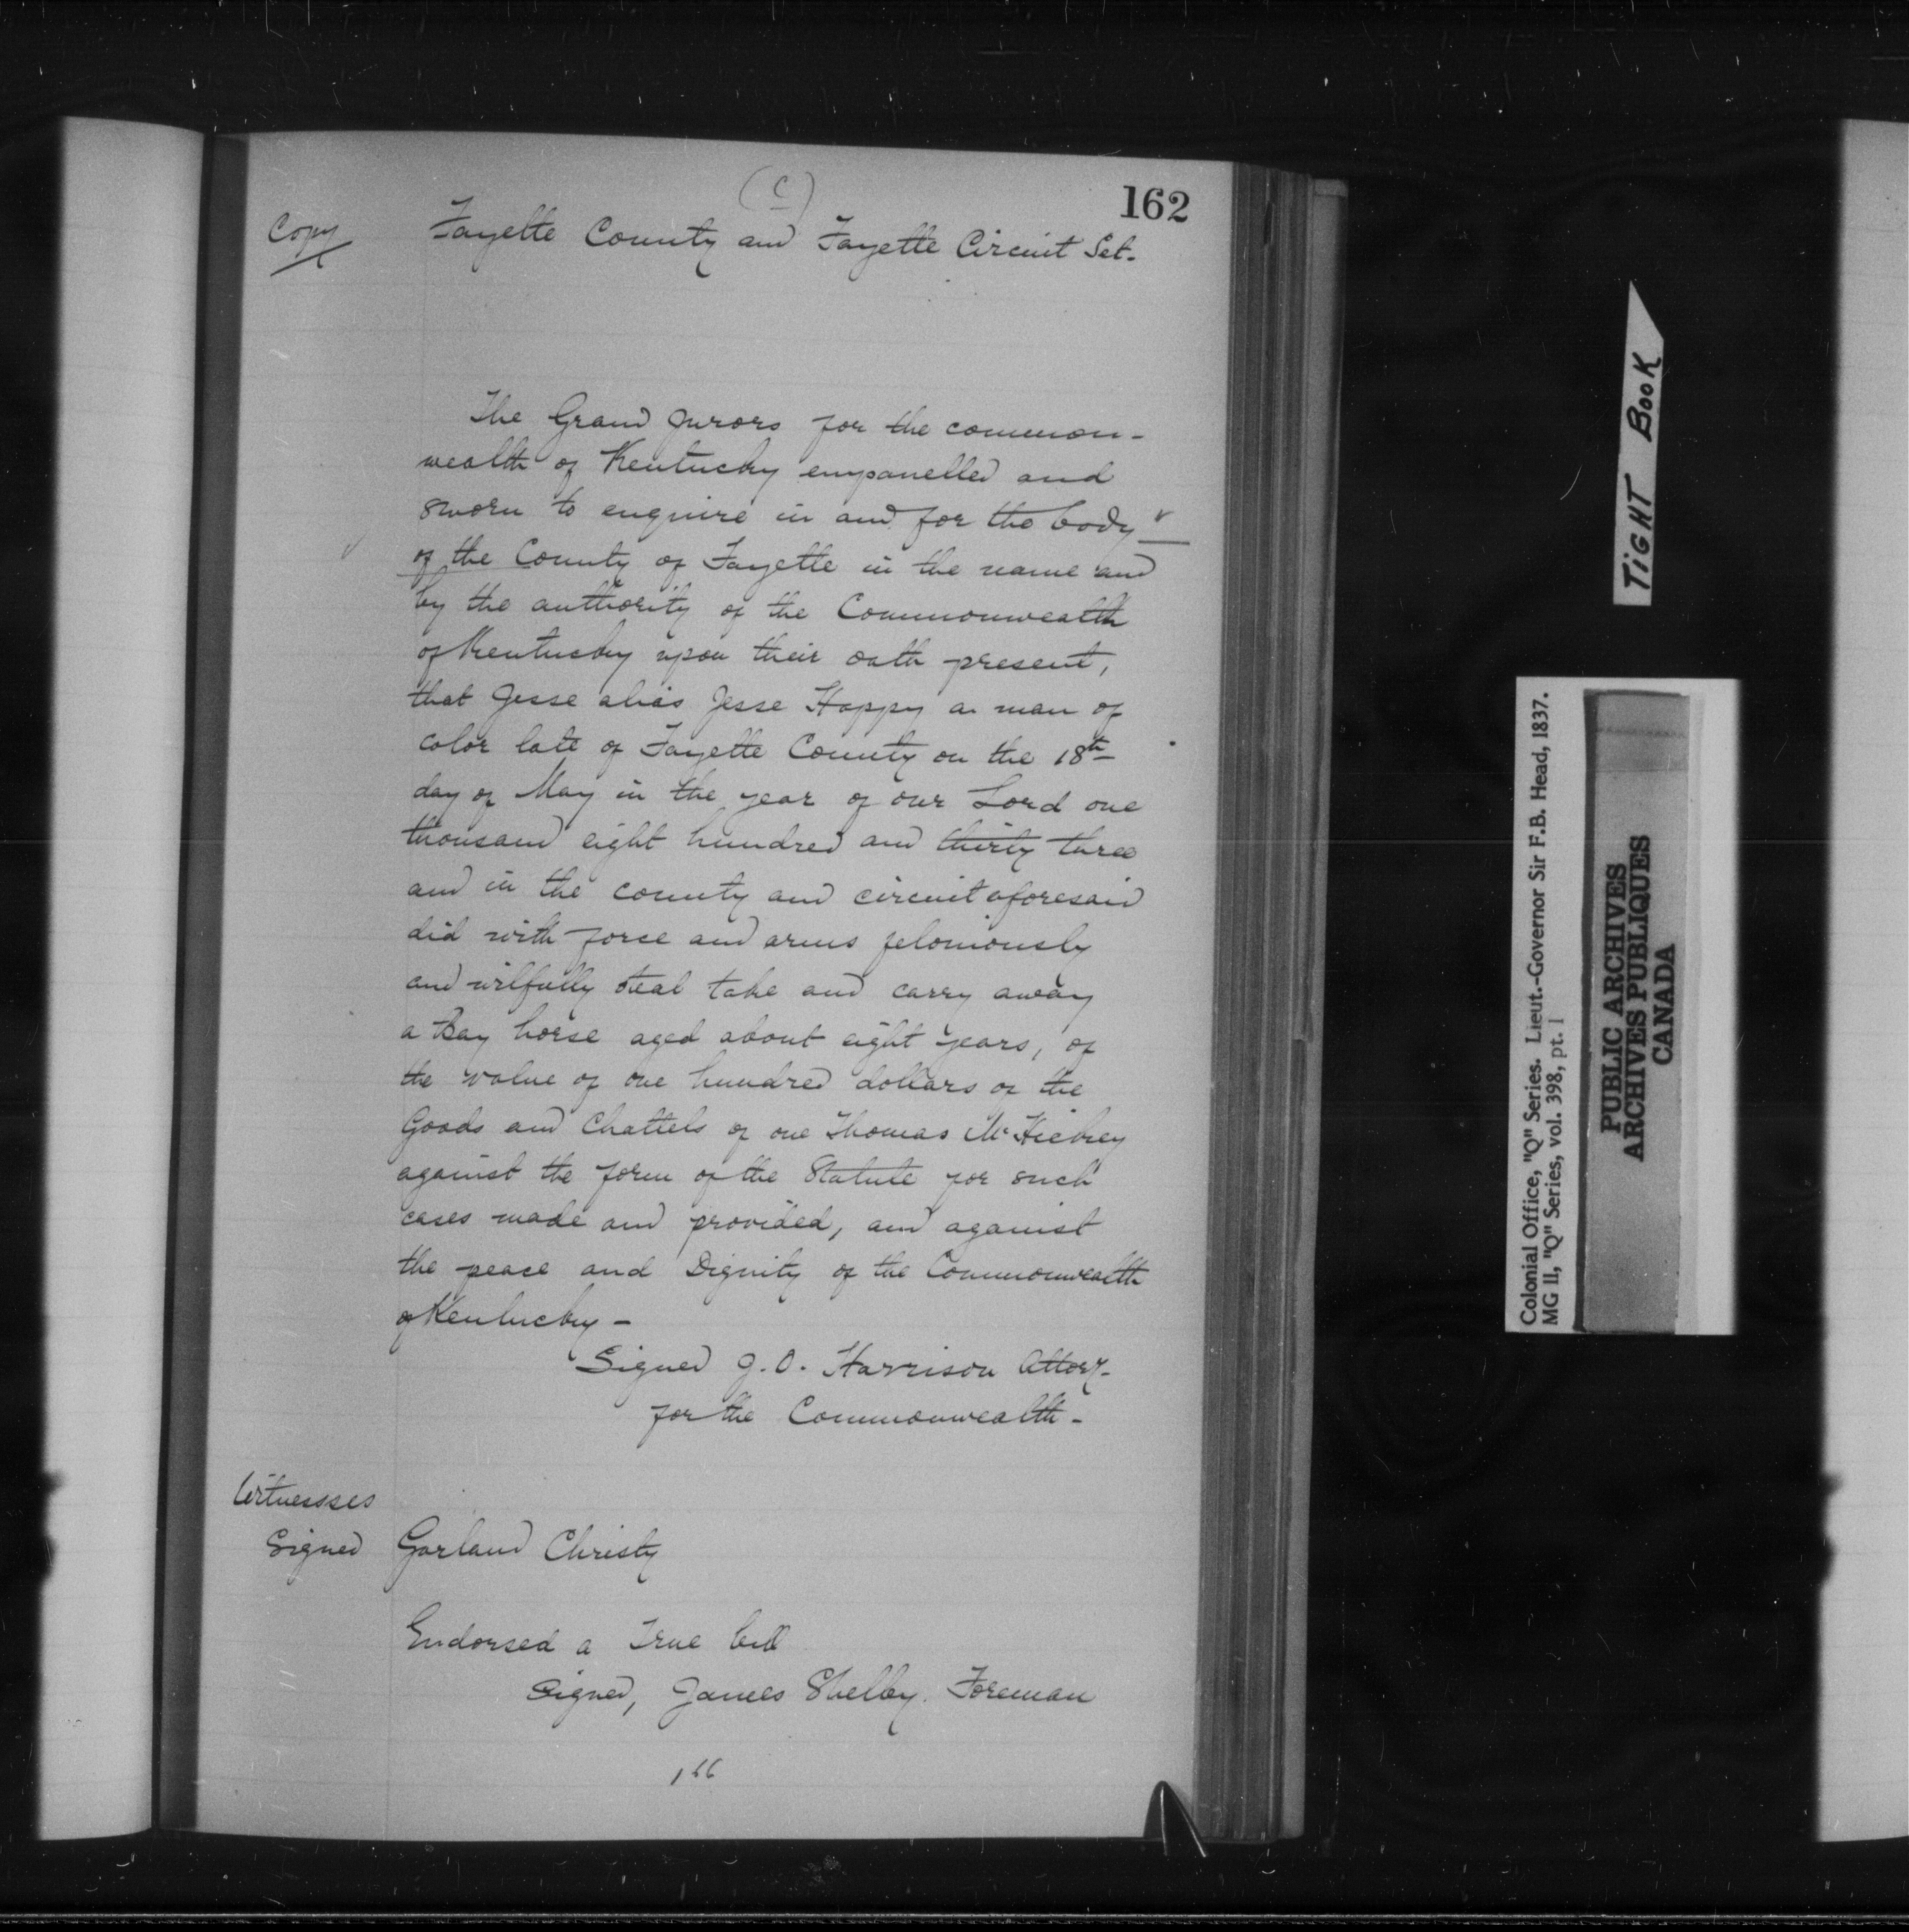 (C)
162
Copy
Fayette County and Fayette Circuit Sct.
The Grand Jurors for the common-
wealth of Kentucky empanelled and
sworn to enquire in and for the body
of the County of Fayette in the name and
by the authority of the Commonwealth
of Kentucky upon their oath present,
that Jesse alias Jesse Happy a man of
color late of Fayette County on the 18th
day of May in the year of our Lord one
thousand eight hundred and thirty three
and in the county and circuit aforesaid
did with force and arms feloniously
and wilfully steal take and carry away
a Bay horse aged about eight years, of
the value of one hundred dollars of the
Goods and Chattels of one Thomas
against the form of the Statute for such
cases made and provided, and against
the peace and Dignity of the Commonwealth
of Kentucky -
Signed J. O. Harrison Attory-
for the Commonwealth -
Witnessses
Signed Garland Christy
Endorsed a True bill
Signed, James Shelby. Foreman
166
TIGHT BOOK
Colonial Office, "Q" Series. Lieut.-Governor Sir F.B. Head, 1837.
MG 11, "Q" Series, vol. 398, pt. 1
PUBLIC ARCHIVES
ARCHIVES PUBLIQUES
CANADA